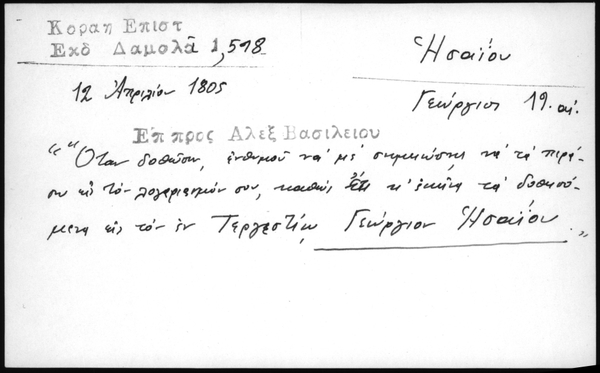 Κοραη Επιστ
Εκδ Δαμαλᾶ 1,518
Ἡσαΐου
12 Ἀπριλίου 1805
Γεώργιος 19. αἰ.
Επ προς Αλεξ Βασιλειου
"“Οταν δοθῶσιν, ἐνθυμοῦ νά μέ σημειώσῃς νά τά περά-
σω εἰς τόν λογαριασμόν σου, καθώς ἔτι κ' ἐκεῖνα τά δοθησό-
μενα εἰς τόν ἐν Τεργεστίῳ Γεώργιον Ἡσαΐου."